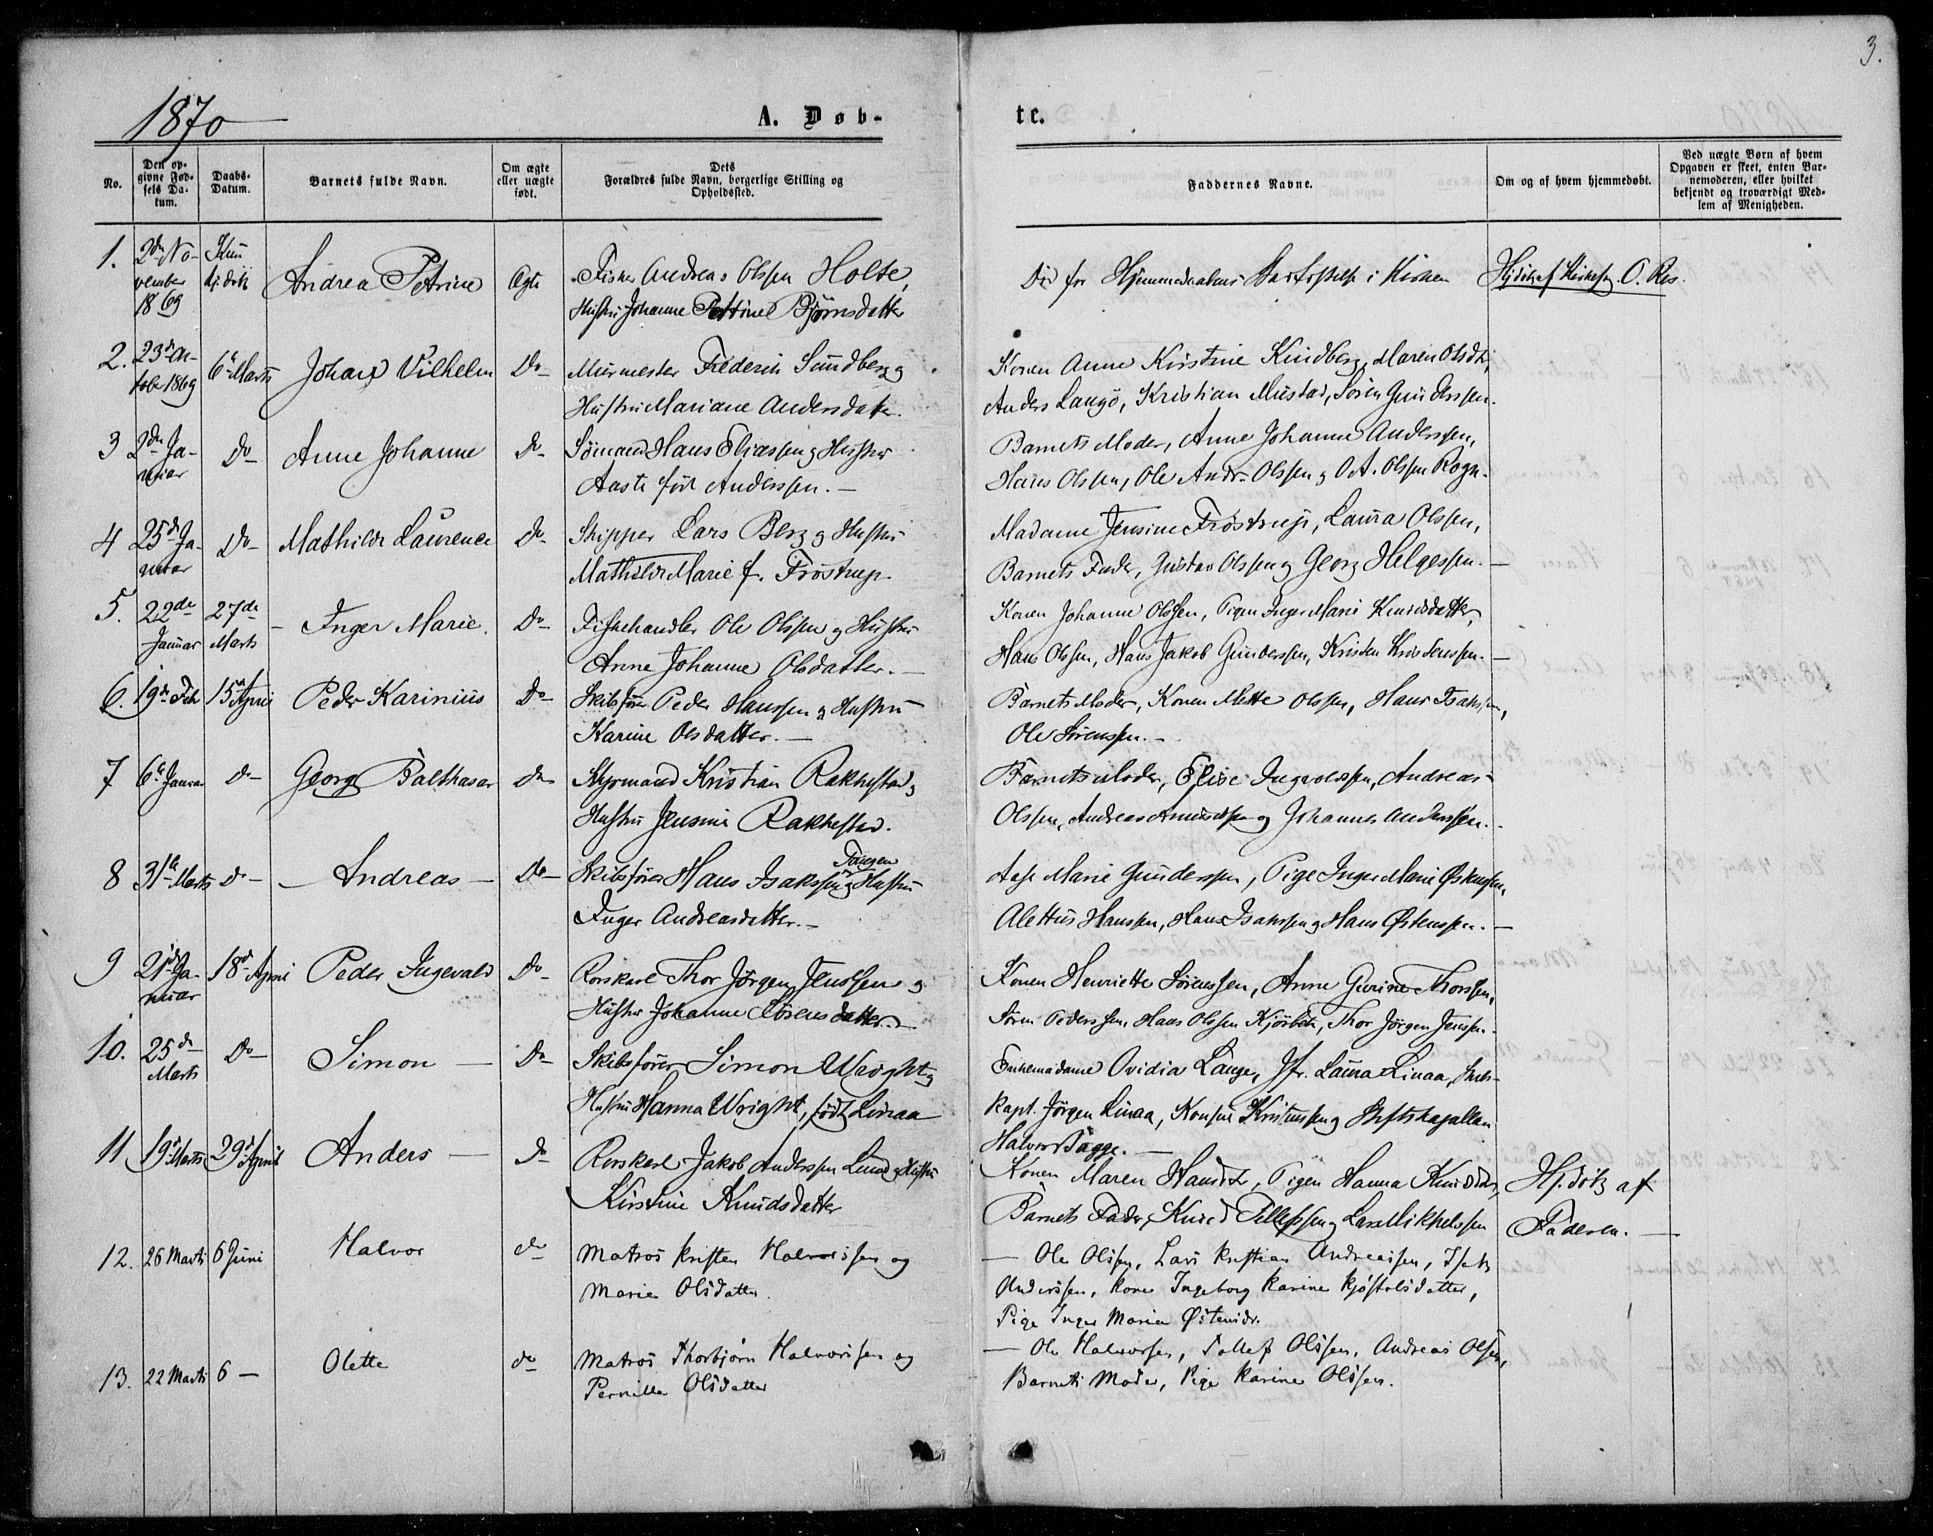 3.
1870
A. Døb-
te.
No.
Den op-
givne Fød-
sels Da-
tum.
Daabs-
Datum.
Barnets fulde Navn.
Om ægte
eller uægte
født.
Dets
Forældres fulde Navn, borgerlige Stilling og
Opholdssted.
Faddernes Navne.
Om og af hvem hjemmedøbt.
Ved uægte Børn af hvem
Opgaven er skeet, enten Bar-
nemoderen, eller hvilket
bekjendt og troværdigt Med-
lem af Menigheden.
1.
2den No-
vember
1869
Kun
hj. døbt
Andrea Petrine
Ægte
Fisker Andreas Olssen Holte,
Hustru Johanne Bjørnsdatter
Død før Hjemmedaabens i Kirken
Hj. døbt af O. Ros.
2.
23de Ok-
tober 1869
6te Marts
Johan Vilhelm
Do
Murmester Frederik Sundberg og
Hustru Mariane Andersdatter.
Konen Anne Kirstine Kindberg, Maren Olsdtr,
Anders Langø, Kristian Mustad, Søren Gunderssen.
3
2den Ja-
nuar
Do
Anne Johanne
Do
Sømand Hans Eliassen og Hustru
Aaste født Anderssen.
Barnets Moder, Anne Johanne Anderssen,
Hans Olssen, Ole Andr. Olssen og O. A. Olssen Rogn.
4
25de Ja-
nuar
Do
Mathilde Laurence
Do
Skipper Lars Berg og Hustru
Mathilde Marie f. Frøstrup.
Madame Jensine Frøstrup, Laura Olssen,
Barnets Fader, Gustav Olssen og Georg Helgessen.
5.
22de
Januar
27de
Marts
Inger Marie.
Do
Fiskehandler Ole Olssen og Hustru
Anne Johanne Olsdatter.
Konen Johanne Olssen, Pigen Inger Marie Knudsdatter,
Hans Olssen, Hans Jakob Gunderssen, Kristen
6.
19de Feb
15de April
Peder Karinius
Do
Skibsfører Peder Hanssen og Hustru
Karine Olsdatter.
Barnets Moder, Konen Mette Olssen, Hans Isakssen,
Ole Sørenssen.
7
6te Januar
Do
Georg Balthasar
Do
Styrmand Kristian Rakkestad og
Hustru Jensine Rakkestad.
Barnets Moder, Elise Ingevoldssen, Andreas
Olssen, Andreas Amundssen og Johannes Anderssen.
8
31te Marts
Do
Andreas
Do
Skibsfører Hans Isakssen Tangen og Hustru
Inger Andreasdatter.
Aase Marie Gunderssen, Pige Inger Marie Østenssen,
Alettus Hanssen, Hans Isakssen og Hans Østenssen.
9
21de Ja-
nuar
18de April
Peder Ingevald
Do
Rorskarl Thor Jørgen Jenssen og
Hustru Johanne Sørensdatter.
Konen Henriette Sørenssen, Anne Gurine Thorssen,
Søren Pederssen, Hans Olssen, Thor Jørgen Jenssen.
10.
25de
Marts
Do
Simon
Do
Skibsfører Simon Wright og
Hustru Hanna Wright, født Linaa
Enkemadame Ovidia Lange, Jfr. Laura Linaa, Skibs-
kapt. Jørgen Linaa, Konsul Kristenssen og Stiftskapellan
Halvor Bagge.
11
19de Marts
29de April
Anders
Do
Rorskarl Jakob Anderssen Lund og Hustru
Kirstine Knudsdatter
Konen Maren Hansdtr, Pigen Hanna Knudsdtr,
Barnets Fader, Knud Tellefssen og Lars Mikkelssen
Hj. døbt af
Faderen.
12.
26 Marts
6 Juni
Halvor
do
Matros Kristen Halvorssen og
Marie Olsdatter.
Ole Olssen, Lars Kristian Andreassen, Isak
Anderssen, Kone Ingeborg Karine Kjøstolsdatter,
Pige Inger Marie Østensdr.
13.
22 Marts
6
Olette
do
Matros Thorbjørn Halvorssen og
Pernille Olsdatter
Ole Halvorsen, Tollef Olssen, Andreas Olsen,
Barnets Moder, Pige Karine Olssen.